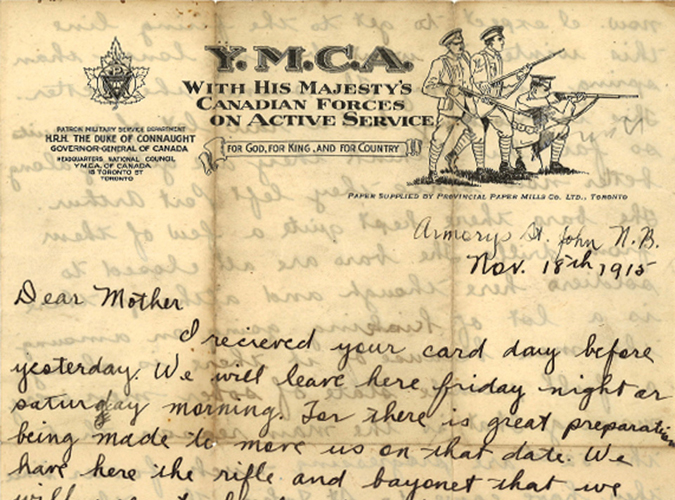 Y.M.C.A.
WITH HIS MAJESTY'S
CANADIAN FORCES
ON ACTIVE SERVICE
FOR GOD, FOR KING, AND FOR COUNTRY
PATRON MILITARY SERVICE DEPARTMENT
H.R.H. THE DUKE OF CONNAUGHT
GOVERNOR-GENERAL OF CANADA
HEADQUARTERS NATIONAL COUNCIL
Y.M.C.A. OF CANADA
15 TORONTO ST
TORONTO
PAPER SUPPLIED BY PROVINCIAL PAPER MILLS CO. LTD., TORONTO
Armory St. John N.B.
Nov. 18th 1915
Dear Mother
I recieved your card day before
yesterday. We will leave here friday night or
saturday morning. For there is great preparation
being made to move us on that date. We
have here the rifle and bayonet that we